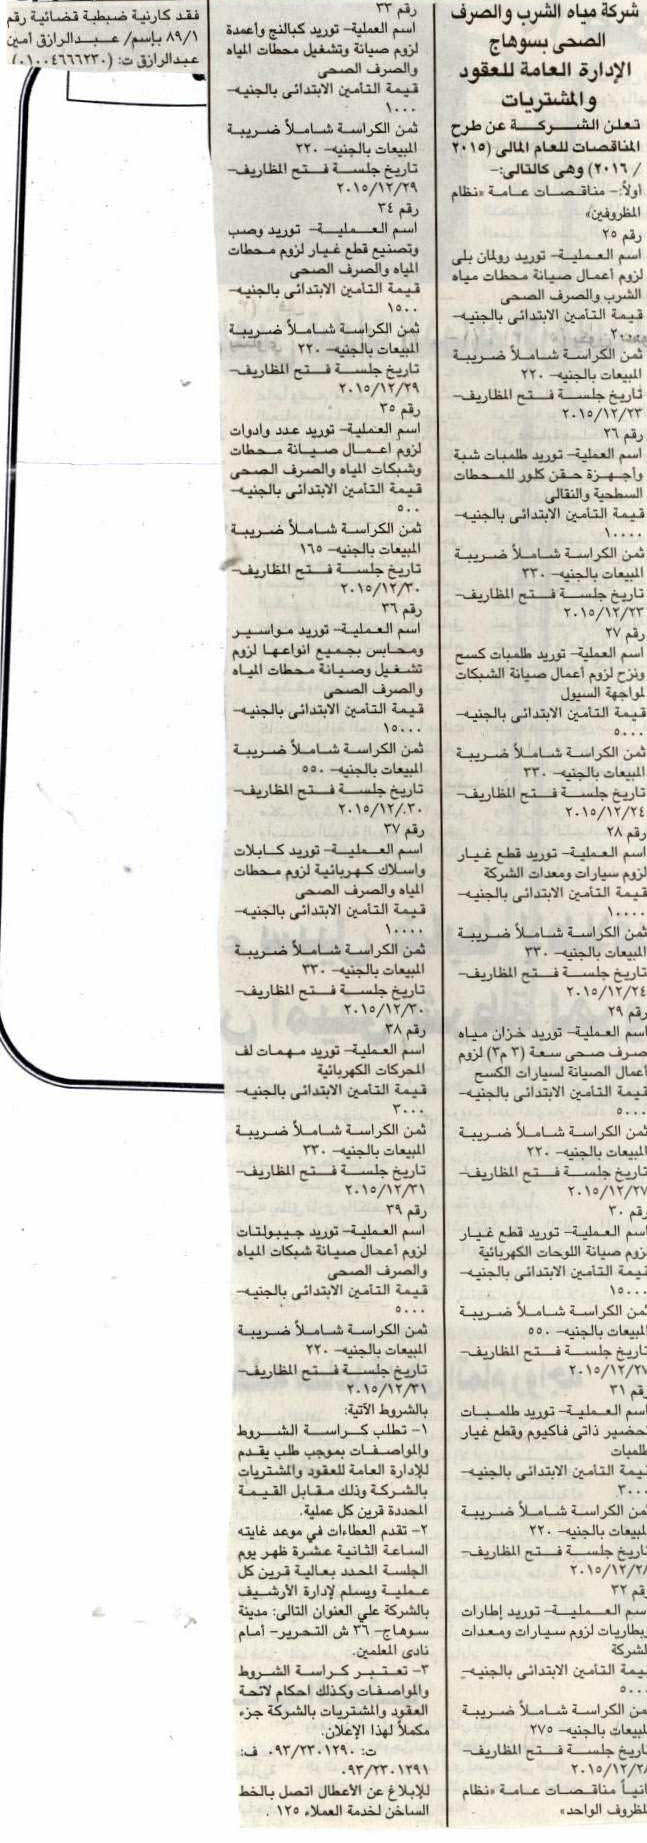 شركة مياه الشرب والصرف
الصحى بسوهاج
الإدارة العامة للعقود
والمشتريات
تعلن الشركة عن طرح
المناقصات للعام المالى (٢٠١٥
/ ٢٠١٦) وهى كالتالى:-
أولاً:- مناقصات عامة «نظام
المظروفين»
رقم ٢٥
اسم العملية- توريد رولمان بلى
لزوم أعمال صيانة محطات مياه
الشرب والصرف الصحى
قيمة التأمين الابتدائى بالجنيه-
٢٠٠٠
ثمن الكراسة شاملاً ضريبة
المبيعات بالجنيه- ٢٢٠
تاريخ جلسة فتح المظاريف-
٢٠١٥/١٢/٢٣
رقم ٢٦
اسم العملية- توريد طلمبات شبة
وأجهزة حقن كلور للمحطات
السطحية والنقالى
قيمة التأمين الابتدائى بالجنيه-
١٠٠٠٠
ثمن الكراسة شاملاً ضريبة
المبيعات بالجنيه- ٣٣٠
تاريخ جلسة فتح المظاريف-
٢٠١٥/١٢/٢٣
رقم ٢٧
اسم العملية- توريد طلمبات كسح
ونزح لزوم أعمال صيانة الشبكات
لمواجهة السيول
قيمة التأمين الابتدائى بالجنيه-
٥٠٠٠
ثمن الكراسة شاملاً ضريبة
المبيعات بالجنيه- ٣٣٠
تاريخ جلسة فتح المظاريف-
٢٠١٥/١٢/٢٤
رقم ٢٨
اسم العملية- توريد قطع غيار
لزوم سيارات ومعدات الشركة
قيمة التأمين الابتدائى بالجنيه-
١٠٠٠٠
ثمن الكراسة شاملاً ضريبة
المبيعات بالجنيه- ٣٣٠
تاريخ جلسة فتح المظاريف-
٢٠١٥/١٢/٢٤
رقم ٢٩
اسم العملية- توريد خزان مياه
صرف صحى سعة (٣ م٣) لزوم
أعمال الصيانة لسيارات الكسح
قيمة التأمين الابتدائى بالجنيه-
٥٠٠٠
ثمن الكراسة شاملاً ضريبة
المبيعات بالجنيه- ٢٢٠
تاريخ جلسة فتح المظاريف-
٢٠١٥/١٢/٢٧
رقم ٣٠
اسم العملية- توريد قطع غيار
لزوم صيانة اللوحات الكهربائية
قيمة التأمين الابتدائى بالجنيه-
١٥٠٠٠
ثمن الكراسة شاملاً ضريبة
المبيعات بالجنيه- ٥٥٠
تاريخ جلسة فتح المظاريف-
٢٠١٥/١٢/٢٧
رقم ٣١
اسم العملية- توريد طلمبات
تحضير ذاتى فاكيوم وقطع غيار
طلمبات
قيمة التأمين الابتدائى بالجنيه-
٣٠٠٠
ثمن الكراسة شاملاً ضريبة
المبيعات بالجنيه- ٢٢٠
تاريخ جلسة فتح المظاريف-
٢٠١٥/١٢/٢٨
رقم ٣٢
اسم العملية- توريد إطارات
وبطاريات لزوم سيارات ومعدات
الشركة
قيمة التأمين الابتدائى بالجنيه-
٥٠٠٠
ثمن الكراسة شاملاً ضريبة
المبيعات بالجنيه- ٢٧٥
تاريخ جلسة فتح المظاريف-
٢٠١٥/١٢/٢٨
ثانياً مناقصات عامة «نظام
المظروف الواحد»
رقم ٣٣
اسم العملية- توريد كبالنج وأعمدة
لزوم صيانة وتشغيل محطات المياه
والصرف الصحى
قيمة التأمين الابتدائى بالجنيه-
١٠٠٠
ثمن الكراسة شاملاً ضريبة
المبيعات بالجنيه- ٢٢٠
تاريخ جلسة فتح المظاريف-
٢٠١٥/١٢/٢٩
رقم ٣٤
اسم العملية- توريد وصب
وتصنيع قطع غيار لزوم محطات
المياه والصرف الصحى
قيمة التأمين الابتدائى بالجنيه-
١٥٠٠
ثمن الكراسة شاملاً ضريبة
المبيعات بالجنيه- ٢٢٠
تاريخ جلسة فتح المظاريف-
٢٠١٥/١٢/٢٩
رقم ٣٥
اسم العملية- توريد عدد وادوات
لزوم اعمال صيانة محطات
وشبكات المياه والصرف الصحى
قيمة التأمين الابتدائى بالجنيه-
٥٠٠
ثمن الكراسة شاملاً ضريبة
المبيعات بالجنيه- ١٦٥
تاريخ جلسة فتح المظاريف-
٢٠١٥/١٢/٣٠
رقم ٣٦
اسم العملية- توريد مواسير
ومحابس بجميع انواعها لزوم
تشغيل وصيانة محطات المياه
والصرف الصحى
قيمة التأمين الابتدائى بالجنيه-
١٥٠٠٠
ثمن الكراسة شاملاً ضريبة
المبيعات بالجنيه- ٥٥٠
تاريخ جلسة فتح المظاريف-
٢٠١٥/١٢/٣٠
رقم ٣٧
اسم العملية- توريد كابلات
واسلاك كهربائية لزوم محطات
المياه والصرف الصحى
قيمة التأمين الابتدائى بالجنيه-
١٠٠٠٠
ثمن الكراسة شاملاً ضريبة
المبيعات بالجنيه- ٣٣٠
تاريخ جلسة فتح المظاريف-
٢٠١٥/١٢/٣٠
رقم ٣٨
اسم العملية- توريد مهمات لف
المحركات الكهربائية
قيمة التأمين الابتدائى بالجنيه-
٣٠٠٠
ثمن الكراسة شاملاً ضريبة
المبيعات بالجنيه- ٣٣٠
تاريخ جلسة فتح المظاريف-
٢٠١٥/١٢/٣١
رقم ٣٩
اسم العملية- توريد جيبولتات
لزوم أعمال صيانة شبكات المياه
والصرف الصحى
قيمة التأمين الابتدائى بالجنيه-
٥٠٠٠
ثمن الكراسة شاملاً ضريبة
المبيعات بالجنيه- ٢٢٠
تاريخ جلسة فتح المظاريف-
٢٠١٥/١٢/٣١
بالشروط الآتية:
١- تطلب كراسة الشروط
والمواصفات بموجب طلب يقدم
للإدارة العامة للعقود والمشتريات
بالشركة وذلك مقابل القيمة
المحددة قرين كل عملية.
٢- تقدم العطاءات في موعد غايته
الساعة الثانية عشرة ظهر يوم
الجلسة المحدد بعالية قرين كل
عملية ويسلم لإدارة الأرشيف
بالشركة علي العنوان التالى: مدينة
سوهاج- ٣٦ ش التحرير- أمام
نادى المعلمين.
٣- تعتبر كراسة الشروط
والمواصفات وكذلك احكام لائحة
العقود والمشتريات بالشركة جزء
مكملاً لهذا الإعلان.
ت: ٠٩٣/٢٣٠١٢٩٠ ف:
٠٩٣/٢٣٠١٢٩١
للإبلاغ عن الأعطال اتصل بالخط
الساخن لخدمة العملاء ١٢٥.
فقد كارنية ضبطية قضائية رقم
٨٩/١ بإسم/ عبدالرازق أمين
عبدالرازق ت: (٠١٠٠٤٦٦٦٢٣٠)